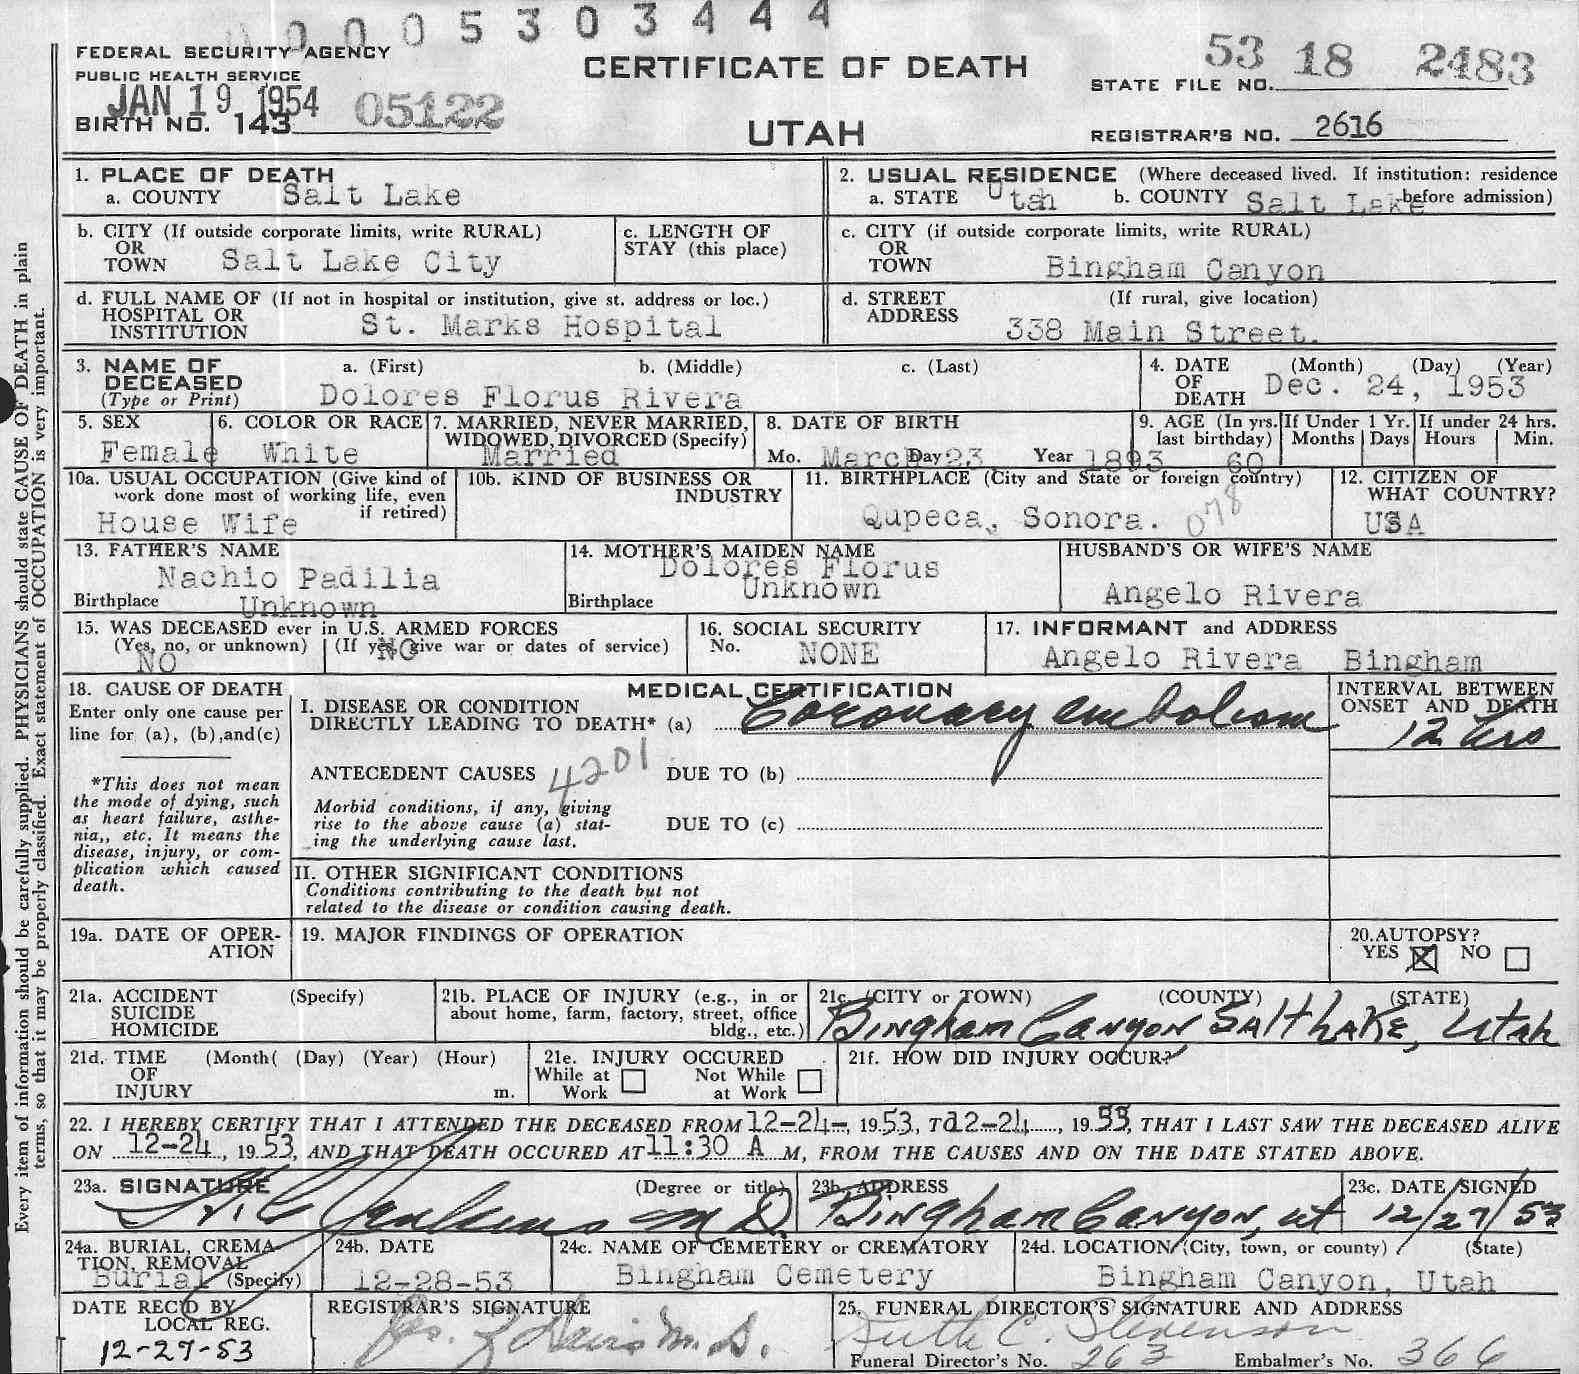 0 0 0 5 3 0 3 4 4 4
FEDERAL SECURITY AGENCY
PUBLIC HEALTH SERVICE
JAN 19 1954
BIRTH NO. 143 05122
CERTIFICATE OF DEATH
UTAH
53 18 2483
STATE FILE NO.
REGISTRAR'S NO. 2616
1. PLACE OF DEATH
a. COUNTY Salt Lake
2. USUAL RESIDENCE (Where deceased lived. If institution: residence
a. STATE Utah b. COUNTY Salt Lake before admission)
b. CITY (If outside corporate limits, write RURAL)
OR
TOWN Salt Lake City
c. LENGTH OF
STAY (this place)
c. CITY (if outside corporate limits, write RURAL)
OR
TOWN Bingham Canyon
d. FULL NAME OF (If not in hospital or institution, give st. address or loc.)
HOSPITAL OR
INSTITUTION St. Marks Hospital
d. STREET (If rural, give location)
ADDRESS 338 Main Street.
3. NAME OF a. (First) b. (Middle) c. (Last)
DECEASED
(Type or Print) Dolores Florus Rivera
4. DATE (Month) (Day) (Year)
OF
DEATH Dec. 24, 1953
5. SEX
Female
6. COLOR OR RACE
White
7. MARRIED, NEVER MARRIED,
WIDOWED, DIVORCED (Specify)
Married
8. DATE OF BIRTH
Mo. March Day 23 Year 1893
9. AGE (In yrs.
last birthday)
60
If Under 1 Yr.
Months Days
If under 24 hrs.
Hours Min.
10a. USUAL OCCUPATION (Give kind of
work done most of working life, even
if retired)
House Wife
10b. KIND OF BUSINESS OR
INDUSTRY
11. BIRTHPLACE (City and State or foreign country)
Qupeca, Sonora. 078
12. CITIZEN OF
WHAT COUNTRY?
USA
13. FATHER'S NAME
Nachio Padilia
Birthplace Unknown
14. MOTHER'S MAIDEN NAME
Dolores Florus
Birthplace Unknown
HUSBAND'S OR WIFE'S NAME
Angelo Rivera
15. WAS DECEASED ever in U.S. ARMED FORCES
(Yes, no, or unknown) (If yes, give war or dates of service)
NO NO
16. SOCIAL SECURITY
No. NONE
17. INFORMANT and ADDRESS
Angelo Rivera Bingham
18. CAUSE OF DEATH
Enter only one cause per
line for (a), (b),and(c)
*This does not mean
the mode of dying, such
as heart failure, asthe-
nia,, etc. It means the
disease, injury, or com-
plication which caused
death.
MEDICAL CERTIFICATION
I. DISEASE OR CONDITION
DIRECTLY LEADING TO DEATH* (a) Coronary embolism
INTERVAL BETWEEN
ONSET AND DEATH
12 hrs
ANTECEDENT CAUSES 4201 DUE TO (b)
Morbid conditions, if any, giving
rise to the above cause (a) stat-
ing the underlying cause last.
DUE TO (c)
II. OTHER SIGNIFICANT CONDITIONS
Conditions contributing to the death but not
related to the disease or condition causing death.
19a. DATE OF OPER-
ATION
19. MAJOR FINDINGS OF OPERATION
20. AUTOPSY?
YES ☒ NO ☐
21a. ACCIDENT (Specify)
SUICIDE
HOMICIDE
21b. PLACE OF INJURY (e.g., in or
about home, farm, factory, street, office
bldg., etc.)
21c. (CITY or TOWN) (COUNTY) (STATE)
Bingham Canyon, Salt Lake, Utah
21d. TIME (Month( (Day) (Year) (Hour)
OF
INJURY m.
21e. INJURY OCCURED
While at Work ☐ Not While at Work ☐
21f. HOW DID INJURY OCCUR?
22. I HEREBY CERTIFY THAT I ATTENDED THE DECEASED FROM 12-24-, 1953, TO 12-24, 1953, THAT I LAST SAW THE DECEASED ALIVE
ON 12-24, 1953, AND THAT DEATH OCCURED AT 11:30 A M, FROM THE CAUSES AND ON THE DATE STATED ABOVE.
23a. SIGNATURE (Degree or title)
Jenkins M.D.
23b. ADDRESS
Bingham Canyon, Ut
23c. DATE SIGNED
12/27/53
24a. BURIAL, CREMA-
TION, REMOVAL
Burial (Specify)
24b. DATE
12-28-53
24c. NAME OF CEMETERY or CREMATORY
Bingham Cemetery
24d. LOCATION (City, town, or county) (State)
Bingham Canyon, Utah
DATE REC'D BY
LOCAL REG.
12-27-53
REGISTRAR'S SIGNATURE
Davis M.D.
25. FUNERAL DIRECTOR'S SIGNATURE AND ADDRESS
Ruth C. Stevenson
Funeral Director's No. 263 Embalmer's No. 366
Every item of information should be carefully supplied. PHYSICIANS should state CAUSE OF DEATH in plain
terms, so that it may be properly classified. Exact statement of OCCUPATION is very important.